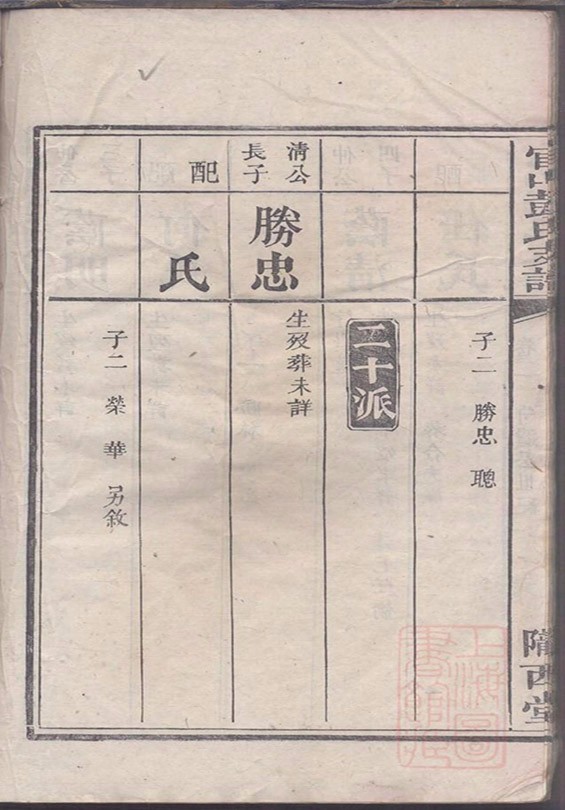 彭氏支譜
隴西堂
子二 勝忠 聰
二十派
清公
長子
勝忠
生歿葬未詳
配
氏
子二 榮 華 另敘
上海圖
書館藏